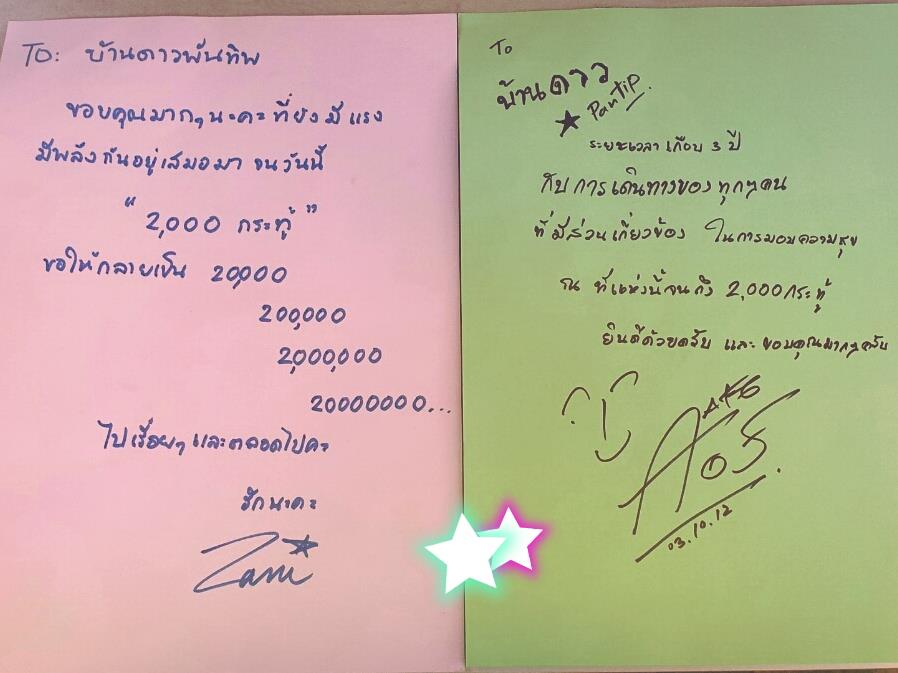 TO: บ้านดาวพันทิพ
ขอบคุณมากๆนะคะ ที่ยังมีแรง
มีพลังกันอยู่เสมอมา จนวันนี้
"2,000 กระทู้"
ขอให้กลายเป็น 20,000
200,000
2,000,000
20000000...
ไปเรื่อยๆ และตลอดไปคะ
รักนะคะ
To
บ้านดาว
Pantip.
ระยะเวลาเกือบ 3 ปี
กับการเดินทางของทุกๆคน
ที่มีส่วนเกี่ยวข้อง ในการมอบความสุข
ณ ที่แห่งนี้จนถึง 2,000กระทู้
ยินดีด้วยครับ และ ขอบคุณมากๆครับ
03.10.12